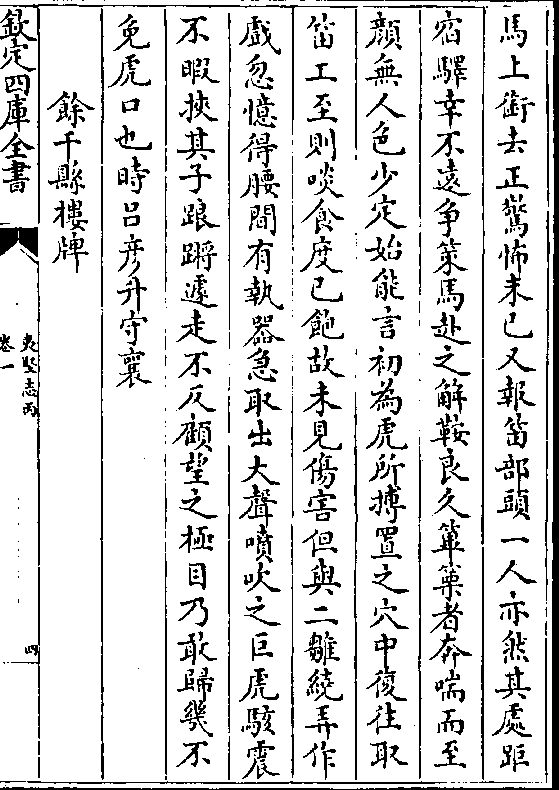 馬上銜去正驚怖未已又報笛部頭一人亦然其處距
宿驛幸不遠爭策馬赴之解鞍良久篳篥者奔喘而至
顔無人色少定始能言初為虎所搏置之穴中復往取
笛工至則啖食度已飽故未見傷害但與二雛繞弄作
戲忽憶得腰間有執器急取出大聲噴吹之巨虎駭震
不暇挾其子踉蹡遽走不反顧望之極目乃敢歸幾不
免虎口也時吕彦升守襄
餘干縣樓牌
欽定四庫全書
夷堅志丙
卷一
四